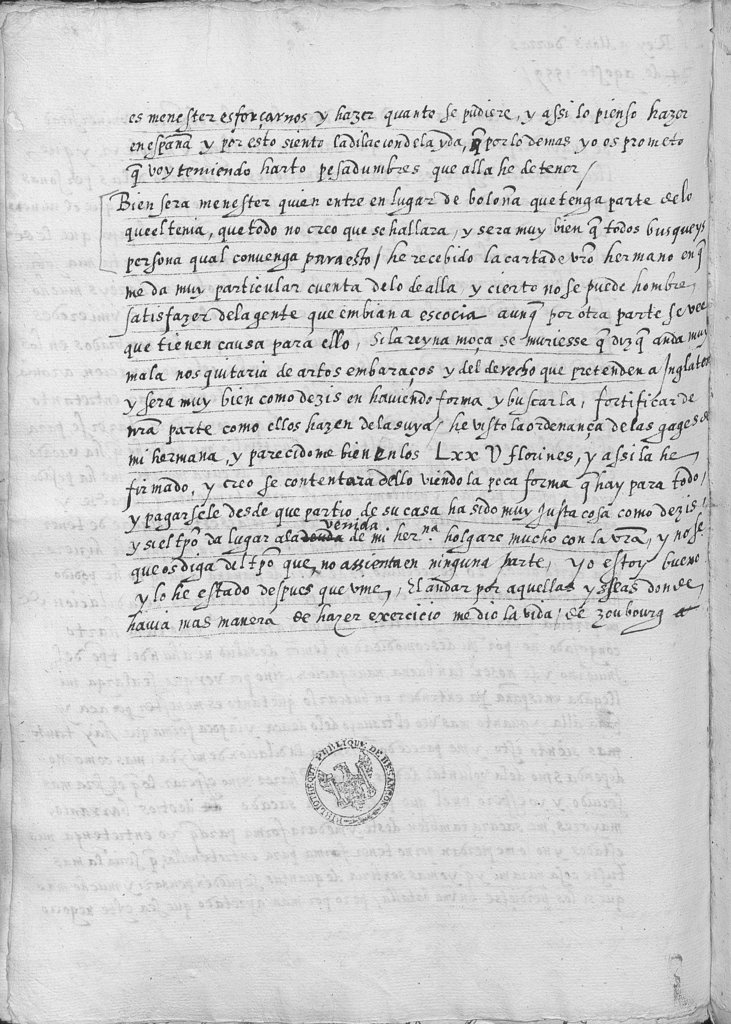 es menester esforçarnos y hazer quanto se pudiere, y assi lo pienso hazer
en españa y por esto siento la dilacion de la yda, q̃ por lo demas yo os prometo
q̃ voy temiendo harto pesadumbres que alla he de tener /
Bien sera menester quien entre en lugar de boloña que tenga parte de lo
que el tenia, que todo no creo que se hallara, y sera muy bien q̃ todos busqueys
persona qual convenga para esto / he recebido la carta de vr̃o hermano en q̃
me da muy particular cuenta de lo de alla, y cierto no se puede hombre
satisfazer de la gente que embian a escocia aunq̃ por otra parte se vee
que tienen causa para ello, si la reyna moça se muriesse q̃ dizq̃ anda muy
mala nos quitaria de artos embaraços y del derecho que pretenden a Inglaterra
y sera muy bien como dezis en haviendo forma y buscarla, fortificar de
nr̃a parte como ellos hazen de la suya / he visto la ordenança de las gages de
mi hermana, y parecidome bien en los Lxx U florines, y assi la he
firmado, y creo se contentara dello viendo la poca forma q̃ hay para todo,
y pagarsele desde que partio de su casa ha sido muy justa cosa como dezis,
venida
y si el tp̃o da lugar a la de mi her.na holgare mucho con la vr̃a, y no se
que os diga del tp̃o que no assienta en ninguna parte, yo estoy bueno
y lo he estado despues que vine, el andar por aquellas yslas donde
havia mas manera de hazer exercicio me dio la vida / de zoubourg
BIBLIOTHEQUE PUBLIQUE DE BESANÇON